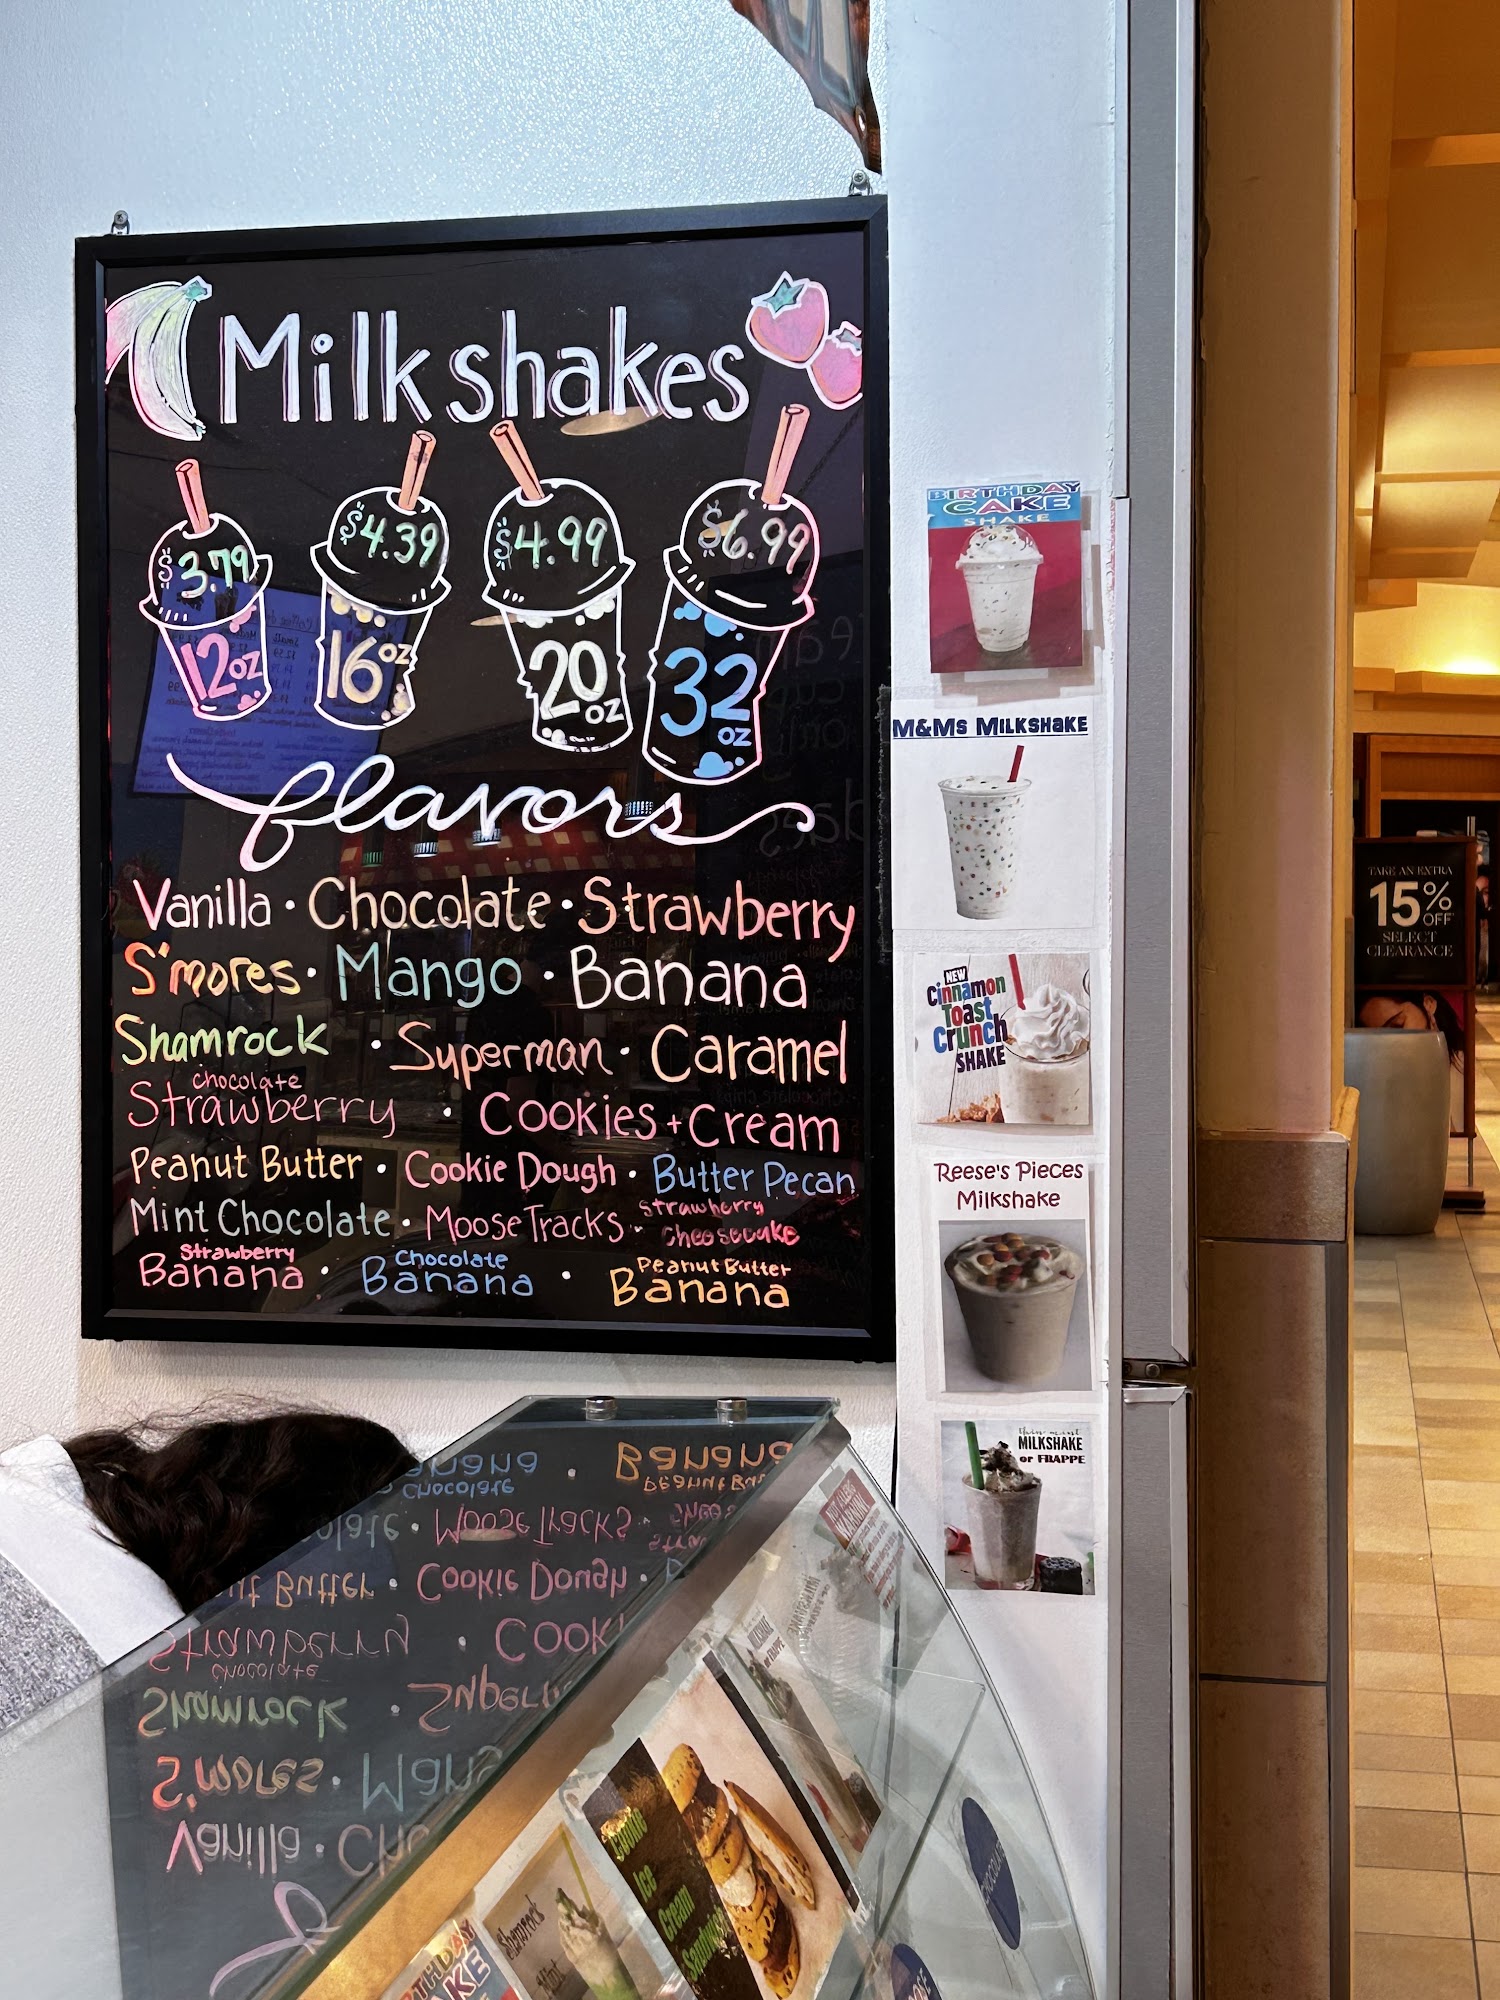 Milkshakes
$3.79 $4.39 $4.99 $6.99
12oz 16oz 20oz 32oz
flavors
Vanilla · Chocolate · Strawberry
S'mores · Mango · Banana
Shamrock · Superman · Caramel
chocolate
Strawberry · Cookies + Cream
Peanut Butter · Cookie Dough · Butter Pecan
Mint Chocolate · Moose Tracks · Strawberry Cheesecake
Strawberry Banana · Chocolate Banana · Peanut Butter Banana
BIRTHDAY
CAKE
SHAKE
M&Ms MILKSHAKE
NEW
Cinnamon
Toast
Crunch
SHAKE
Reese's Pieces
Milkshake
MILKSHAKE
or FRAPPE
TAKE AN EXTRA
15%
OFF
SELECT
CLEARANCE
Cookie
Ice
Cream
Shamrock
Mint
CHOCOLATE